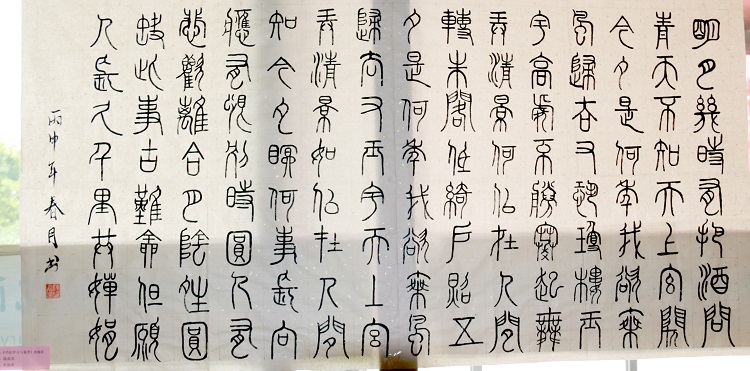 明月幾時有把酒問
青天不知天上宮闕
今夕是何年我欲乘
風歸去又恐瓊樓玉
宇高處不勝寒起舞
弄清景何似在人間
轉朱閣低綺戶照五
夕是何年我欲乘風
歸去又玉宇天上宮
弄清景如似在人間
知今夕眠何事長向
應有恨別時圓人有
悲歡離合月陰晴圓
缺此事古難全但願
人長久千里共嬋娟
丙申年春月书